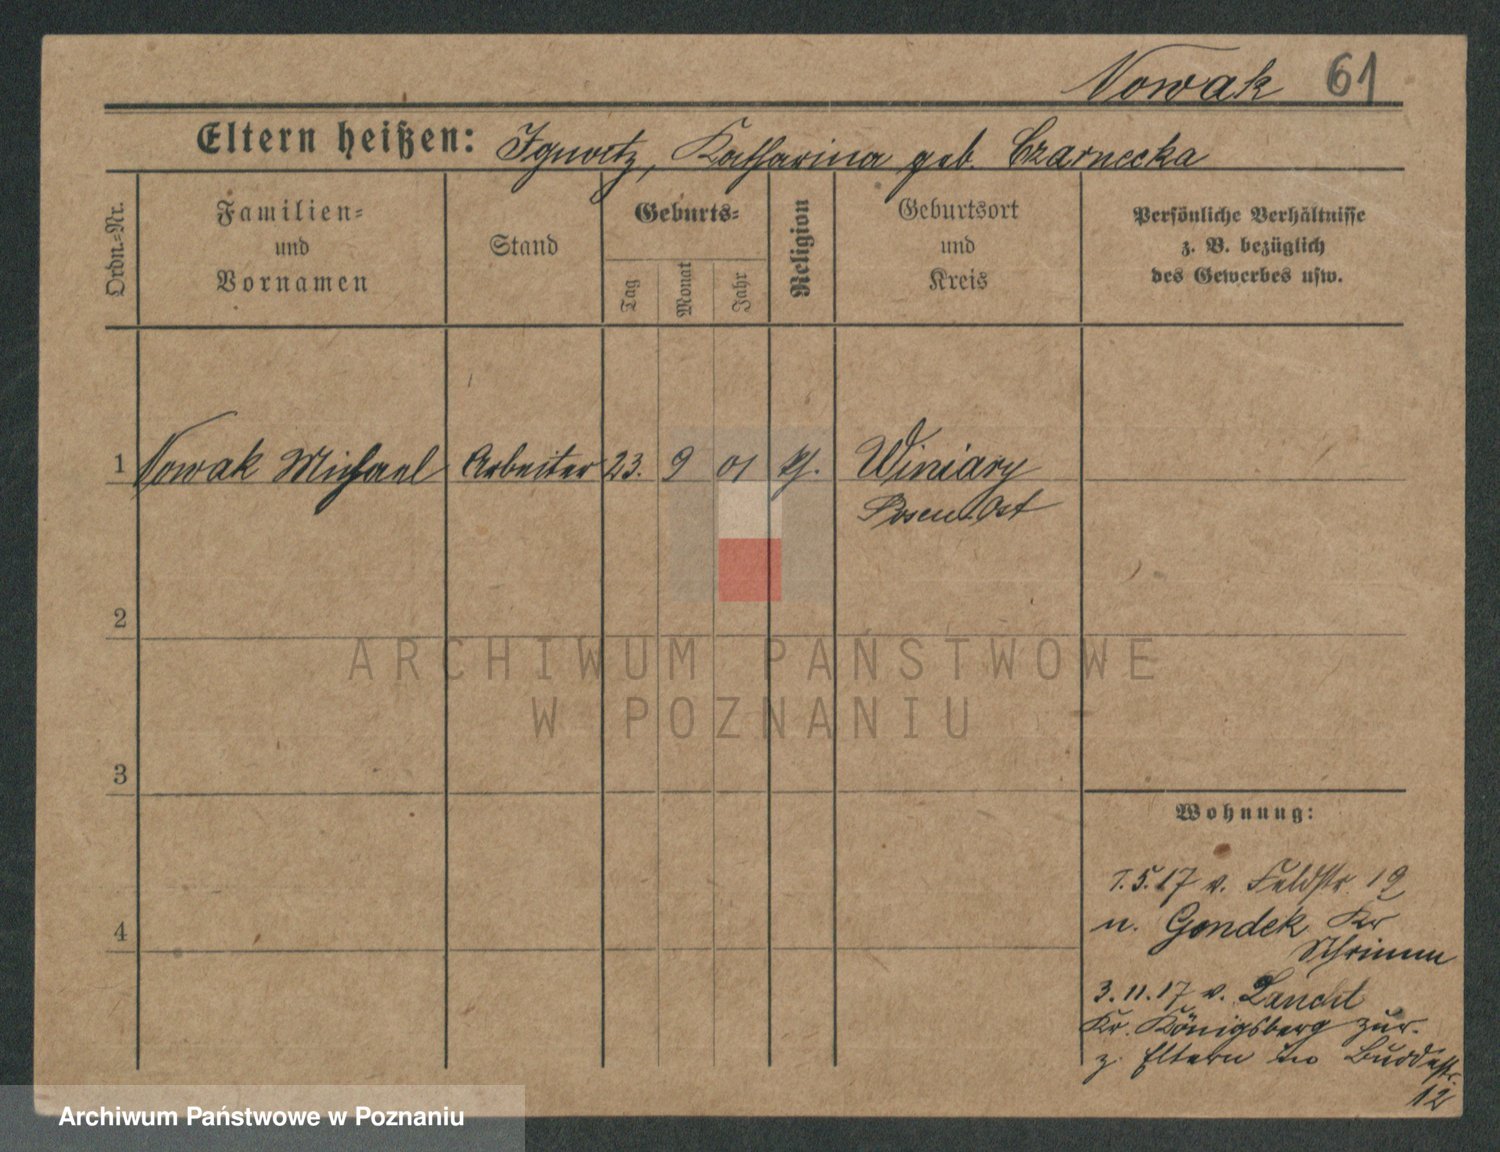 Nowak 61
Eltern heißen: Ignatz, Katharina geb. Czarnecka
Ordn.-Nr.
Familien- und Vornamen
Stand
Geburts-
Tag
Monat
Jahr
Religion
Geburtsort und Kreis
Persönliche Verhältnisse z. B. bezüglich des Gewerbes usw.
1 Nowak Michael Arbeiter 23. 9 01 kt. Winiary
Posen Ost
2
ARCHIWUM PAŃSTWOWE
W POZNANIU
3
Wohnung:
1.5.17 v. Feldstr. 19
n. Gondek Kr
Schrimm
4
3.11.17 v.
Kr. Königsberg zur.
z. Eltern Buddestr.
12
Archiwum Państwowe w Poznaniu